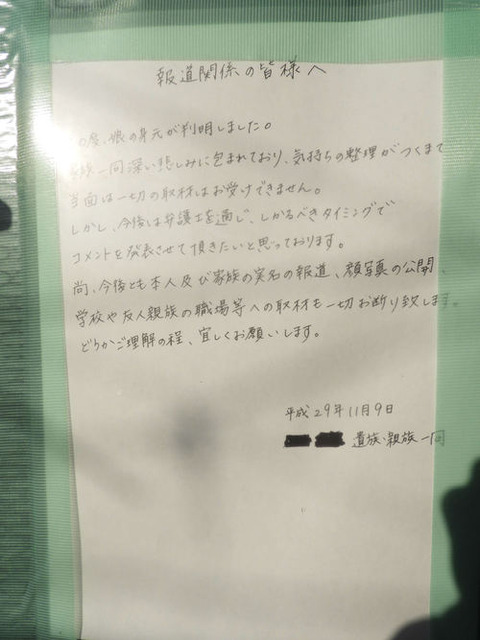 報道関係の皆様へ
の度、娘の身元が判明しました。
族一同深い悲しみに包まれており、気持ちの整理がつくまで
当面は一切の取材はお受けできません。
しかし、今後は弁護士を通じ、しかるべきタイミングで
コメントを発表させて頂きたいと思っております。
尚、今後とも本人及び家族の実名の報道、顔写真の公開、
学校や友人親族の職場等への取材も一切お断り致します。
どうかご理解の程、宜しくお願いします。
平成29年11月9日
遺族・親族一同